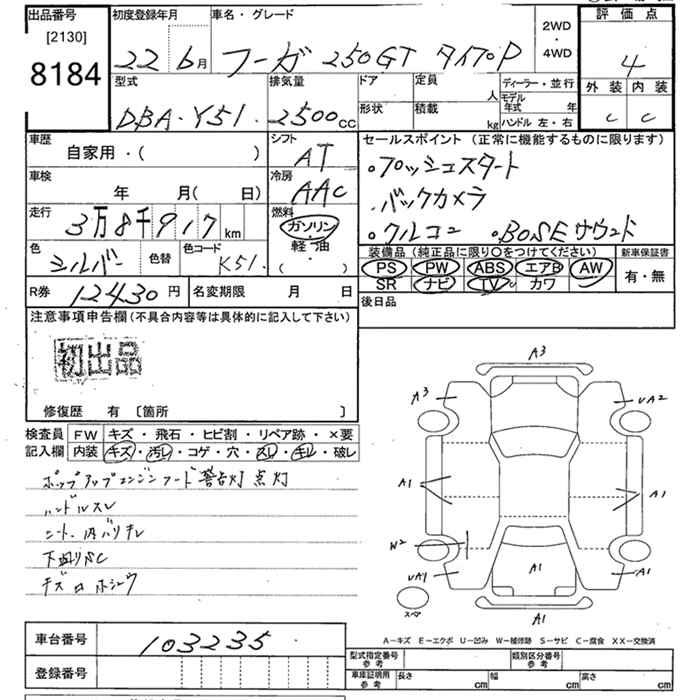 出品番号
[2130]
8184
初度登録年月
22 6月
車名・グレード
フーガ 250GT タイプP
2WD
・
4WD
評価点
4
外装 内装
C C
型式
DBA-Y51
排気量
2500cc
ドア
形状
定員 人
積載 kg
ディーラー・並行
モデル年式 年
ハンドル 左・右
車歴
自家用・( )
シフト
AT
車検
年 月( 日)
冷房
AAC
走行
3万8千917km
燃料
ガソリン
軽油
・( )
色
シルバー
色替
色コード
K51
セールスポイント (正常に機能するものに限ります)
・プッシュスタート
・バックカメラ
・クルコン ・BOSEサウンド
装備品(純正品に限り○をつけてください)
PS PW ABS エアB AW
SR ナビ TV カワ
新車保証書
有・無
R券 12430円
名変期限 月 日
後日品
注意事項申告欄(不具合内容等は具体的に記入して下さい)
初出品
修復歴 有 〔箇所 〕
検査員記入欄
FW キズ・飛石・ヒビ割・リペア跡・×要
内装 キズ・汚レ・コゲ・穴・スレ・キレ・破レ
ポップアップエンジンフード警告灯 点灯
ハンドルスレ
シート、内バリキレ
下廻りサビ
キズ凹ホシュウ
A3
A3
UA2
A1
A1
W2
UA1
A1
A1
A1
スペア
A-キズ E-エクボ U-凹み W-補修跡 S-サビ C-腐食 XX-交換済
車台番号 103235
登録番号
型式指定番号 参考
類別区分番号 参考
車庫証明用 参考
長さ cm
幅 cm
高さ cm